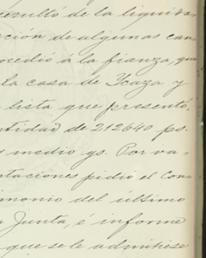 resultó de la liquida
ción de algunas can
ocedió a la fianza, que
la casa de Ycaza y
lista que presentó,
ntidad de 212640 ps.
medio gs. Por va
taciones pidió el Con
imonio del último
Junta, é informe
que se le admitiese